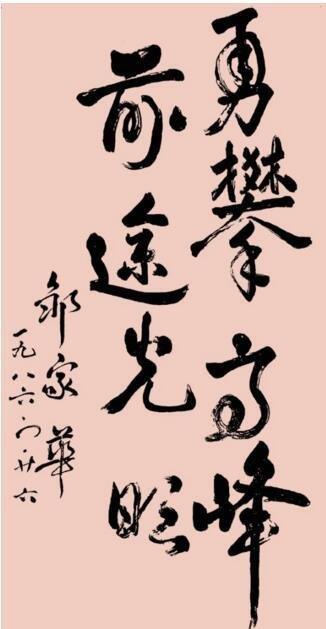 勇攀高峰
前途光明
邹家華
一九八六 廿六